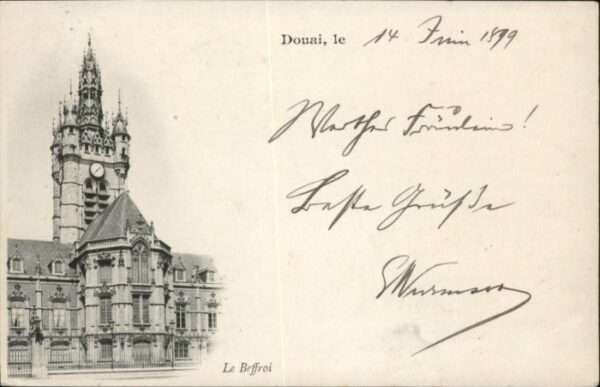 Douai, le 14 Juin 1899
Werthes Fräulein!
Beste Grüße
Le Beffroi